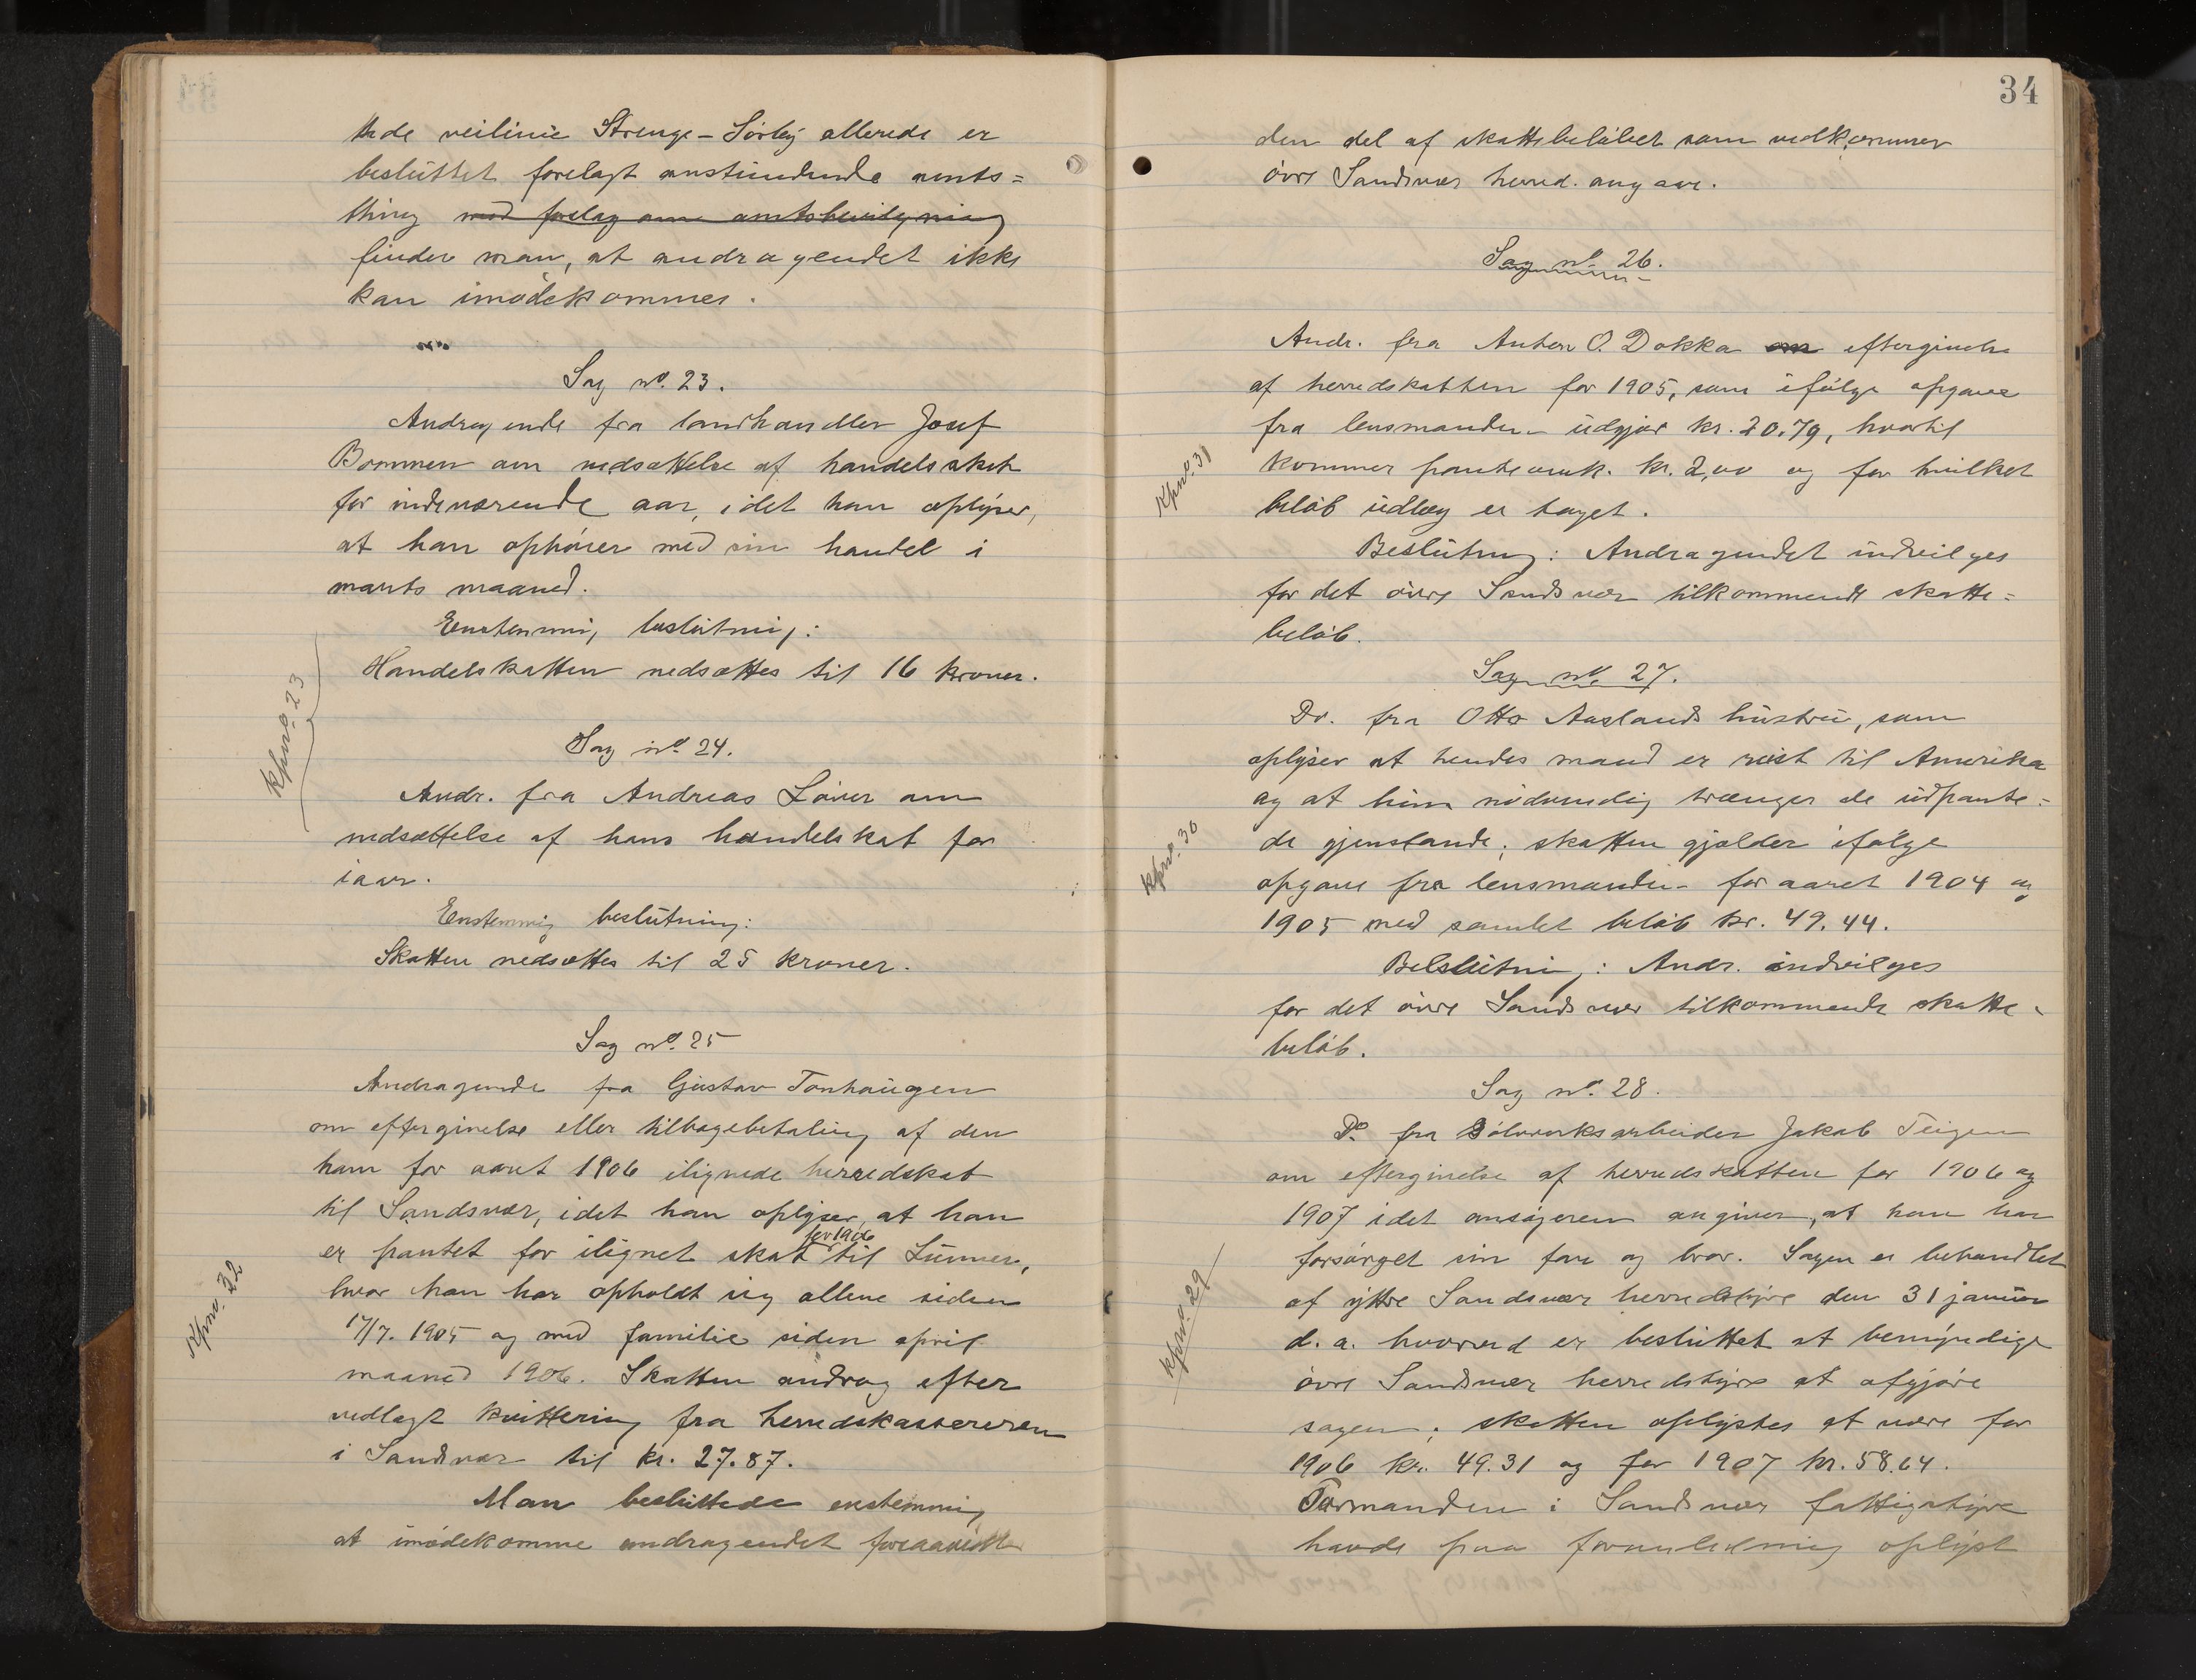 tede veilinie Strenge-Sørby allerede er
besluttet forelagt anstundende amts=
thing med forslag om amtsbevilgning
finder man, at andragendet ikke
kan imødekommes.
Sag no. 23.
Andragende fra landhandler Josef
Bommen om nedsættelse af handelsskat
for indeværende aar, idet han oplyser,
at han ophører med sin handel i
marts maaned.
Enstemmig beslutning:
Handelskatten nedsættes til 16 kroner.
Kpn. 23
Sag no. 24.
Andr. fra Andreas Løver om
nedsættelse af hans handelskat for
iaar.
Enstemmig beslutning:
Skatten nedsættes til 25 kroner.
Sag no. 25
Andragende fra Gustav Tonhaugen
om eftergivelse eller tilbagebetaling af den
ham for aaret 1906 ilignede herredskat
til Sandsvær, idet han oplyser, at han
er pantet for ilignet skat for 1906 til Lunner,
hvor han har opholdt sig allene siden
17/7. 1905 og med familie siden april
maaned 1906. Skatten androg efter
vedlagt kvittering fra herredskassereren
i Sandsvær til kr. 27.87.
Kpn. 32
Man besluttede enstemmig
at imødekomme andragendet forsaavidt
34
den del af skattebeløbet som vedkommer
øvre Sandsvær herred angaar.
Sag no. 26.
Andr. fra Anton O. Dokka om eftergivelse
af herredskatten for 1905, som ifølge opgave
fra lensmanden udgjør kr. 20.79, hvortil
kommer panteomk. kr. 2,00 og for hvilket
beløb udlæg er taget.
Kpn. 31
Beslutning: Andragendet indvilges
for det øvre Sandsvær tilkommende skatte=
beløb.
Sag no. 27.
Do. fra Otto Aaslands hustru, som
oplyser at hendes mand er reist til Amerika
og at hun nødvendig trænger de udpante=
de gjenstande; skatten gjælder ifølge
opgave fra lensmanden for aaret 1904 og
1905 med samlet beløb kr. 49.44.
Kpn. 30
Belslutning: Andr. indvilges
for det øvre Sandsvær tilkommende skatte=
beløb.
Sag no. 28.
Do. fra Sølvverksarbeider Jakob Teigen
om eftergivelse af herredsskatten for 1906 og
1907 idet ansøgeren angiver, at han har
forsørget sin far og bror. Sagen er behandlet
af ytre Sandsvær herredstyre den 31 januar
d. a. hvorved er besluttet at bemyndige
øvre Sandsvær herredstyre at afgjøre
sagen; skatten oplystes at være for
1906 kr. 49.31 og for 1907 kr. 58.64.
Kpn. 29
Formanden i Sandsvær fattigstyre
havde paa foranledning oplyst